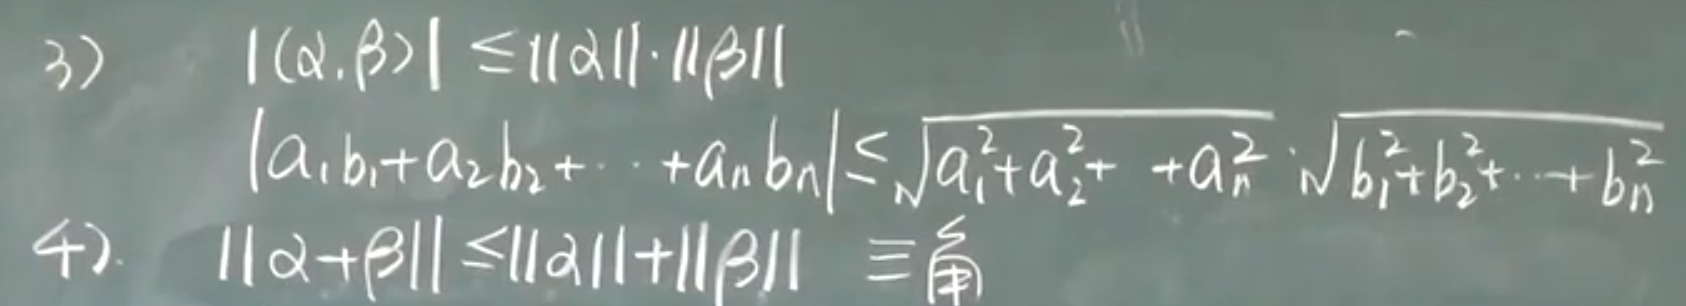 3) |(α,β)| ≤ ||α||·||β||
|a₁b₁+a₂b₂+⋯+aₙbₙ| ≤ √(a₁²+a₂²+ +aₙ²)·√(b₁²+b₂²+⋯+bₙ²)
4). ||α+β|| ≤ ||α||+||β|| 三角